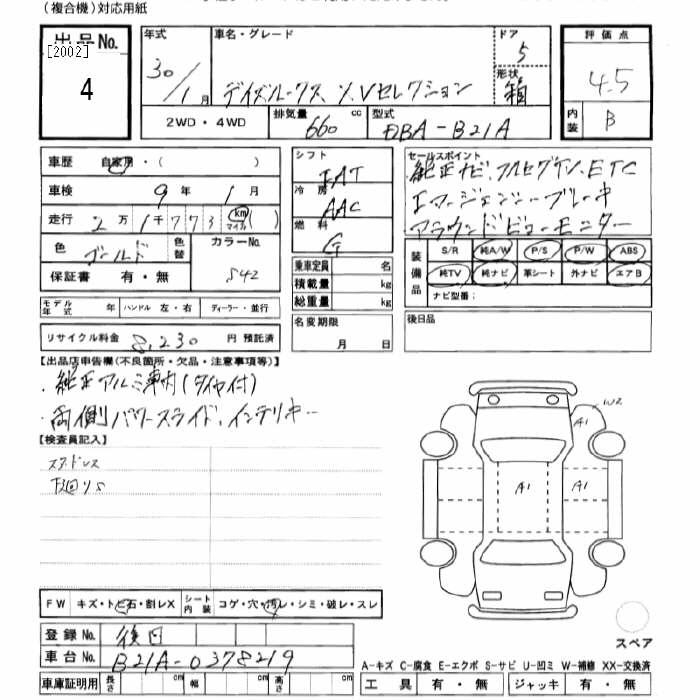 (複合機)対応用紙
出品No.
[2002]
4
年式
30/1月
車名・グレード
デイズルークス、X、Vセレクション
ドア
5
形状
箱
評価点
4.5
内装
B
2WD・4WD
排気量
660
cc
型式
DBA-B21A
車歴 自家用・( )
車検 9年1月
走行 2万1千773 km マイル ( )
色 ゴールド
色替
カラーNo.
保証書 有・無
シフト
FAT
冷房
AAC
燃料
G
乗車定員 名
積載量 kg
総重量 kg
セールスポイント
純正ナビ、フルセグTV、ETC
エマージェンシーブレーキ
アラウンドビューモニター
装備品
S/R 純A/W P/S P/W ABS
純TV 純ナビ 革シート 外ナビ エアB
ナビ型番:
モデル年式 年 ハンドル 左・右 ディーラー・並行
リサイクル料金 8,230 円 預託済
名変期限
月 日
後日品
【出品店申告欄(不良箇所・欠品・注意事項等)】
・純正アルミ車内(タイヤ付)
・両側パワースライド、インテリキー
【検査員記入】
スタッドレス
下廻りS
A1
W2
A1
A1
FW キズ・トビ石・割レX シート内装 コゲ・穴・汚レ・シミ・破レ・スレ
登録No. 後日
車台No. B21A-0378219
車庫証明用 長さ cm 幅 cm 高さ cm
スペア
A-キズ C-腐食 E-エクボ S-サビ U-凹ミ W-補修 XX-交換済
工具 有・無 ジャッキ 有・無